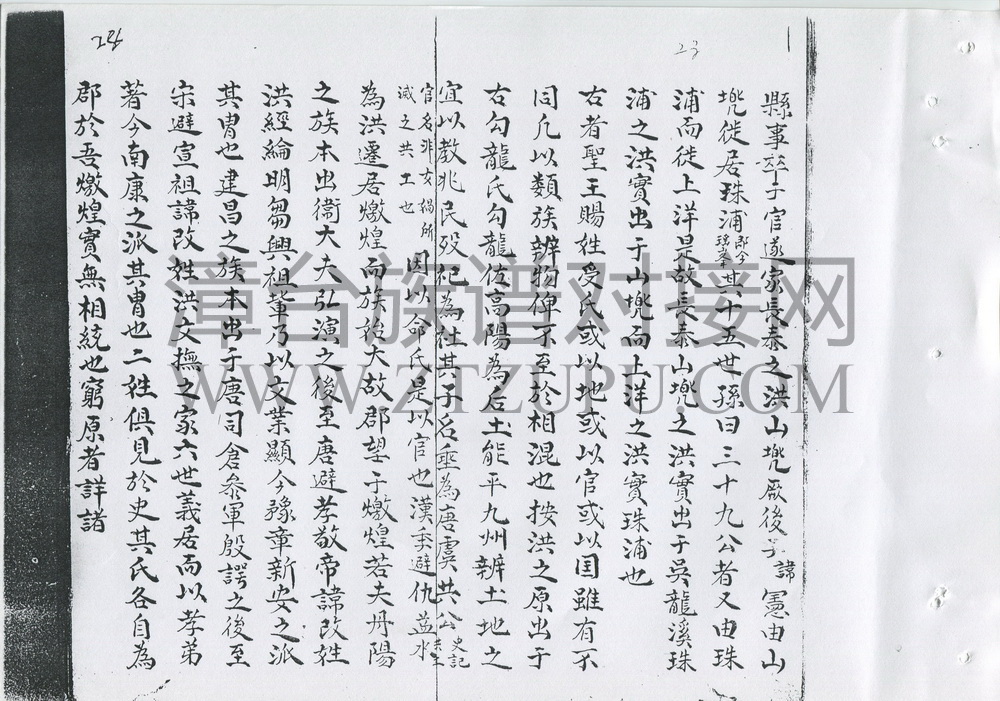 23
24
縣事卒于官遂家長泰之洪山兠厥後諱憲由山
兠徙居珠浦其十五世孫曰三十九公者又由珠
浦而徙上洋是故長泰山兠之洪實出于吳龍溪珠
浦之洪實出于山兠而上洋之洪實珠浦也
右者聖王賜姓受氏或以地或以官或以国雖有不
同凡以類族辨物俾不至於相混也按洪之原出于
右勾龍氏勾龍佐高陽為后土能平九州辨土地之
宜以教兆民歿祀為社其子名垂為唐虞共公史記
官名非女媧所
滅之共工也
因以命氏是以官也漢季避仇益水
為洪遷居燉煌而族始大故郡望于燉煌若夫丹陽
之族本出衛大夫弘演之後至唐避孝敬帝諱改姓
洪經綸明芻興祖輩乃以文業顯今豫章新安之派
其冑也建昌之族本出于唐司倉參軍殷諤之後至
宋避宣祖諱改姓洪文撫之家六世義居而以孝弟
著今南康之派其冑也二姓俱見於史其氏各自為
郡於吾燉煌實無相統也窮原者詳諸
漳台族谱对接网
WWW.ZTZUPU.COM